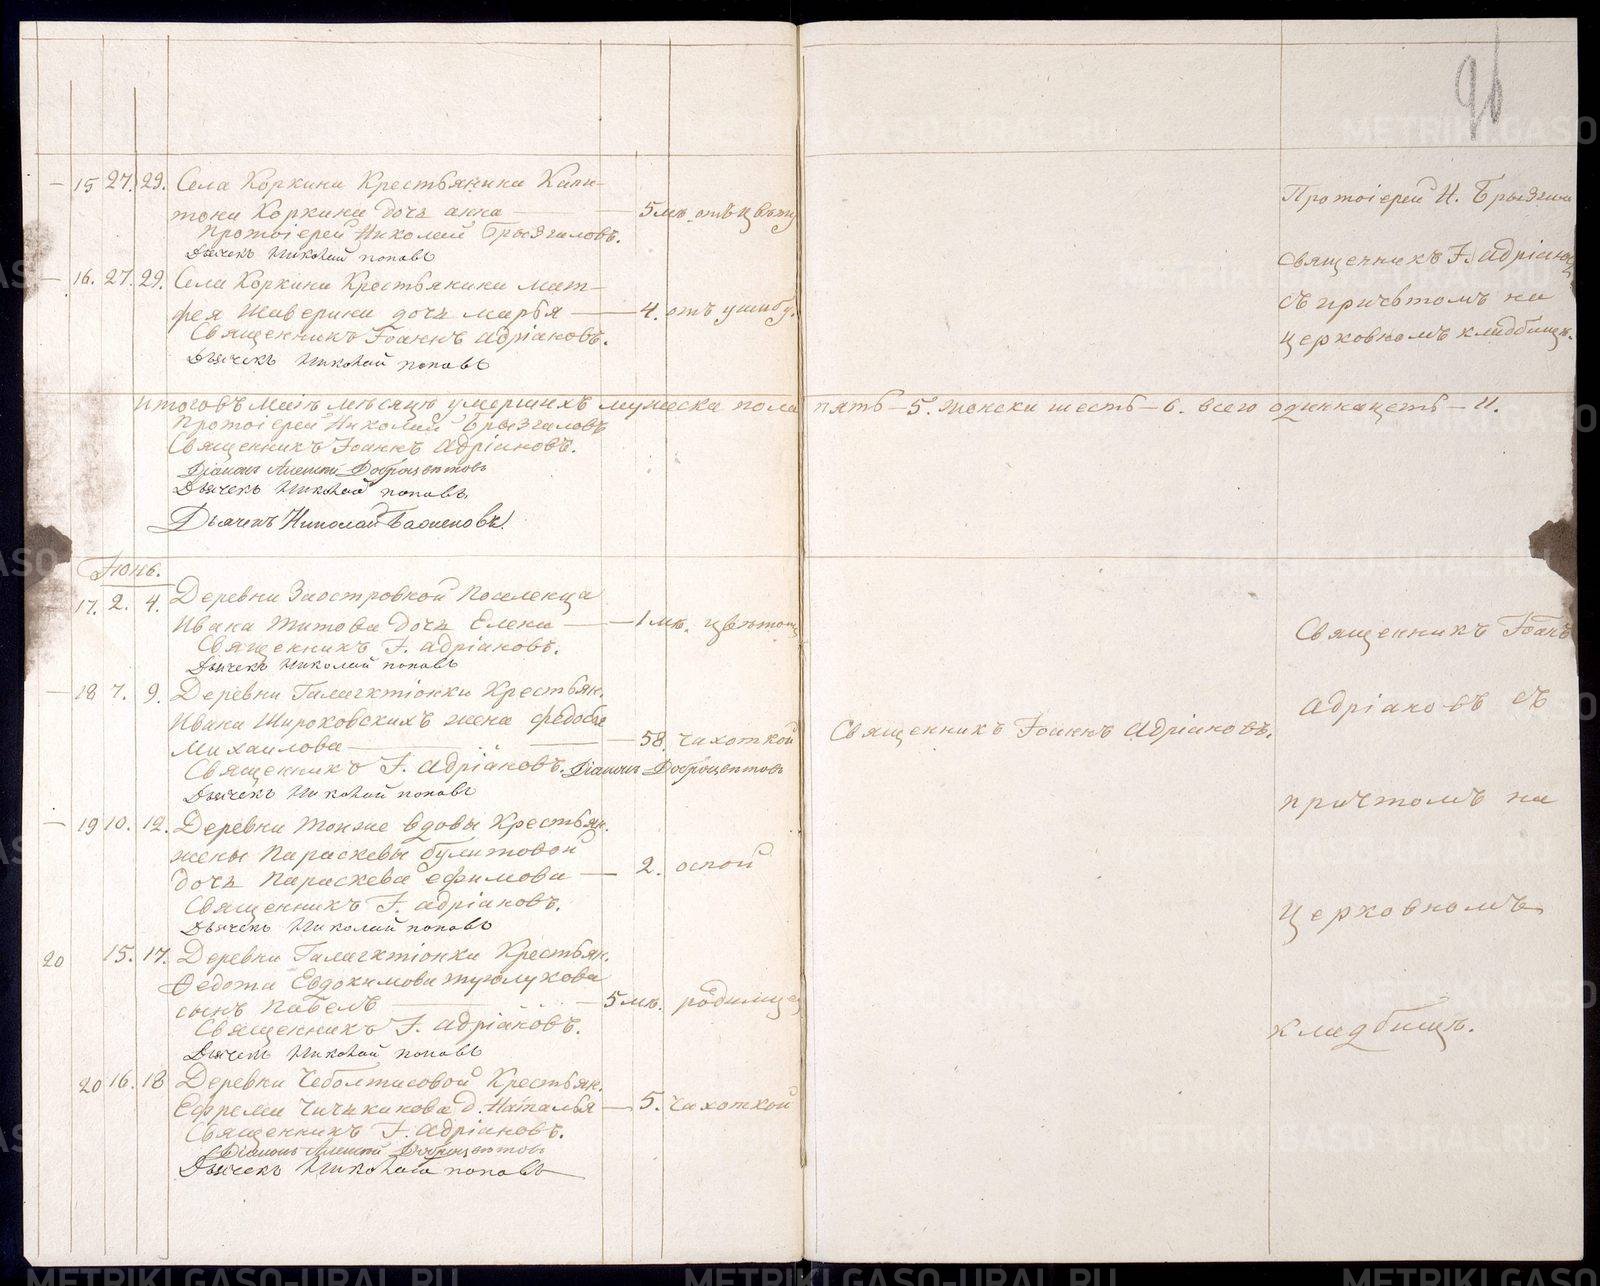 96
— 15 27. 29. Села Коркина Крестьянина Капи-
тона Коркина дочь анна — 5 мѣ. отъ цвѣту
Протоіерей Николай Брызгаловъ.
Дьячекъ Николай поповъ
— 16. 27. 29. Села Коркина Крестьянина мат-
фея Шаверина дочь марья — 4. отъ ушибу.
Священникъ Іоаннъ Адріановъ.
Дьячекъ Николай поповъ
Протоіерей Н. Брызгал
Священникъ І. Адріанов
съ причьтомъ на
церковномъ кладбищѣ.
итоговъ Маіѣ мѣсяцѣ умершихъ мужеска пола пять — 5. женска шесть — 6. всего одиннацеть — 11.
Протоіерей Николай Брызгаловъ
Священникъ Іоаннъ Адріановъ.
Діаконъ Доброцвѣтовъ
Дьячекъ Николай поповъ
Дьячекъ Николай
Іюнь.
17. 2. 4. Деревни Заостровкой Поселенца
Ивана Титова дочь Елена — 1 мѣ. цвѣтом
Священникъ І. Адріановъ.
Дьячекъ Николай поповъ
— 18 7. 9. Деревни Галактіонки Крестьян.
Ивана Широковскихъ жена федосья
Михаилова — 58. чахоткой
Священникъ І. Адріановъ. Діаконъ Доброцвѣтовъ
Дьячекъ Николай поповъ
— 19 10. 12. Деревни Тоюже вдовы Крестьян.
жены Параскевы булатовой
дочь Параскева ефимова — 2. оспой
Священникъ І. Адріановъ.
Дьячекъ Николай поповъ
20 15. 17. Деревни Галактіонки Крестьян.
Ѳедота Евдокимова
сынъ Павелъ — 5 мѣ. родимцец
Священникъ І. Адріановъ.
Дьячекъ Николай поповъ
20 16. 18 Деревни Крестьян.
Ефрема Чичиникова д. Наталья — 5. Чахоткой
Священникъ І. Адріановъ.
Діаконъ Доброцвѣтовъ
Дьячекъ Николай поповъ
Священникъ Іоаннъ Адріановъ.
Священникъ Іоанъ
Адріановъ съ
причтомъ на
церковномъ
кладбищѣ.
METRIKI.GASO-URAL.RU